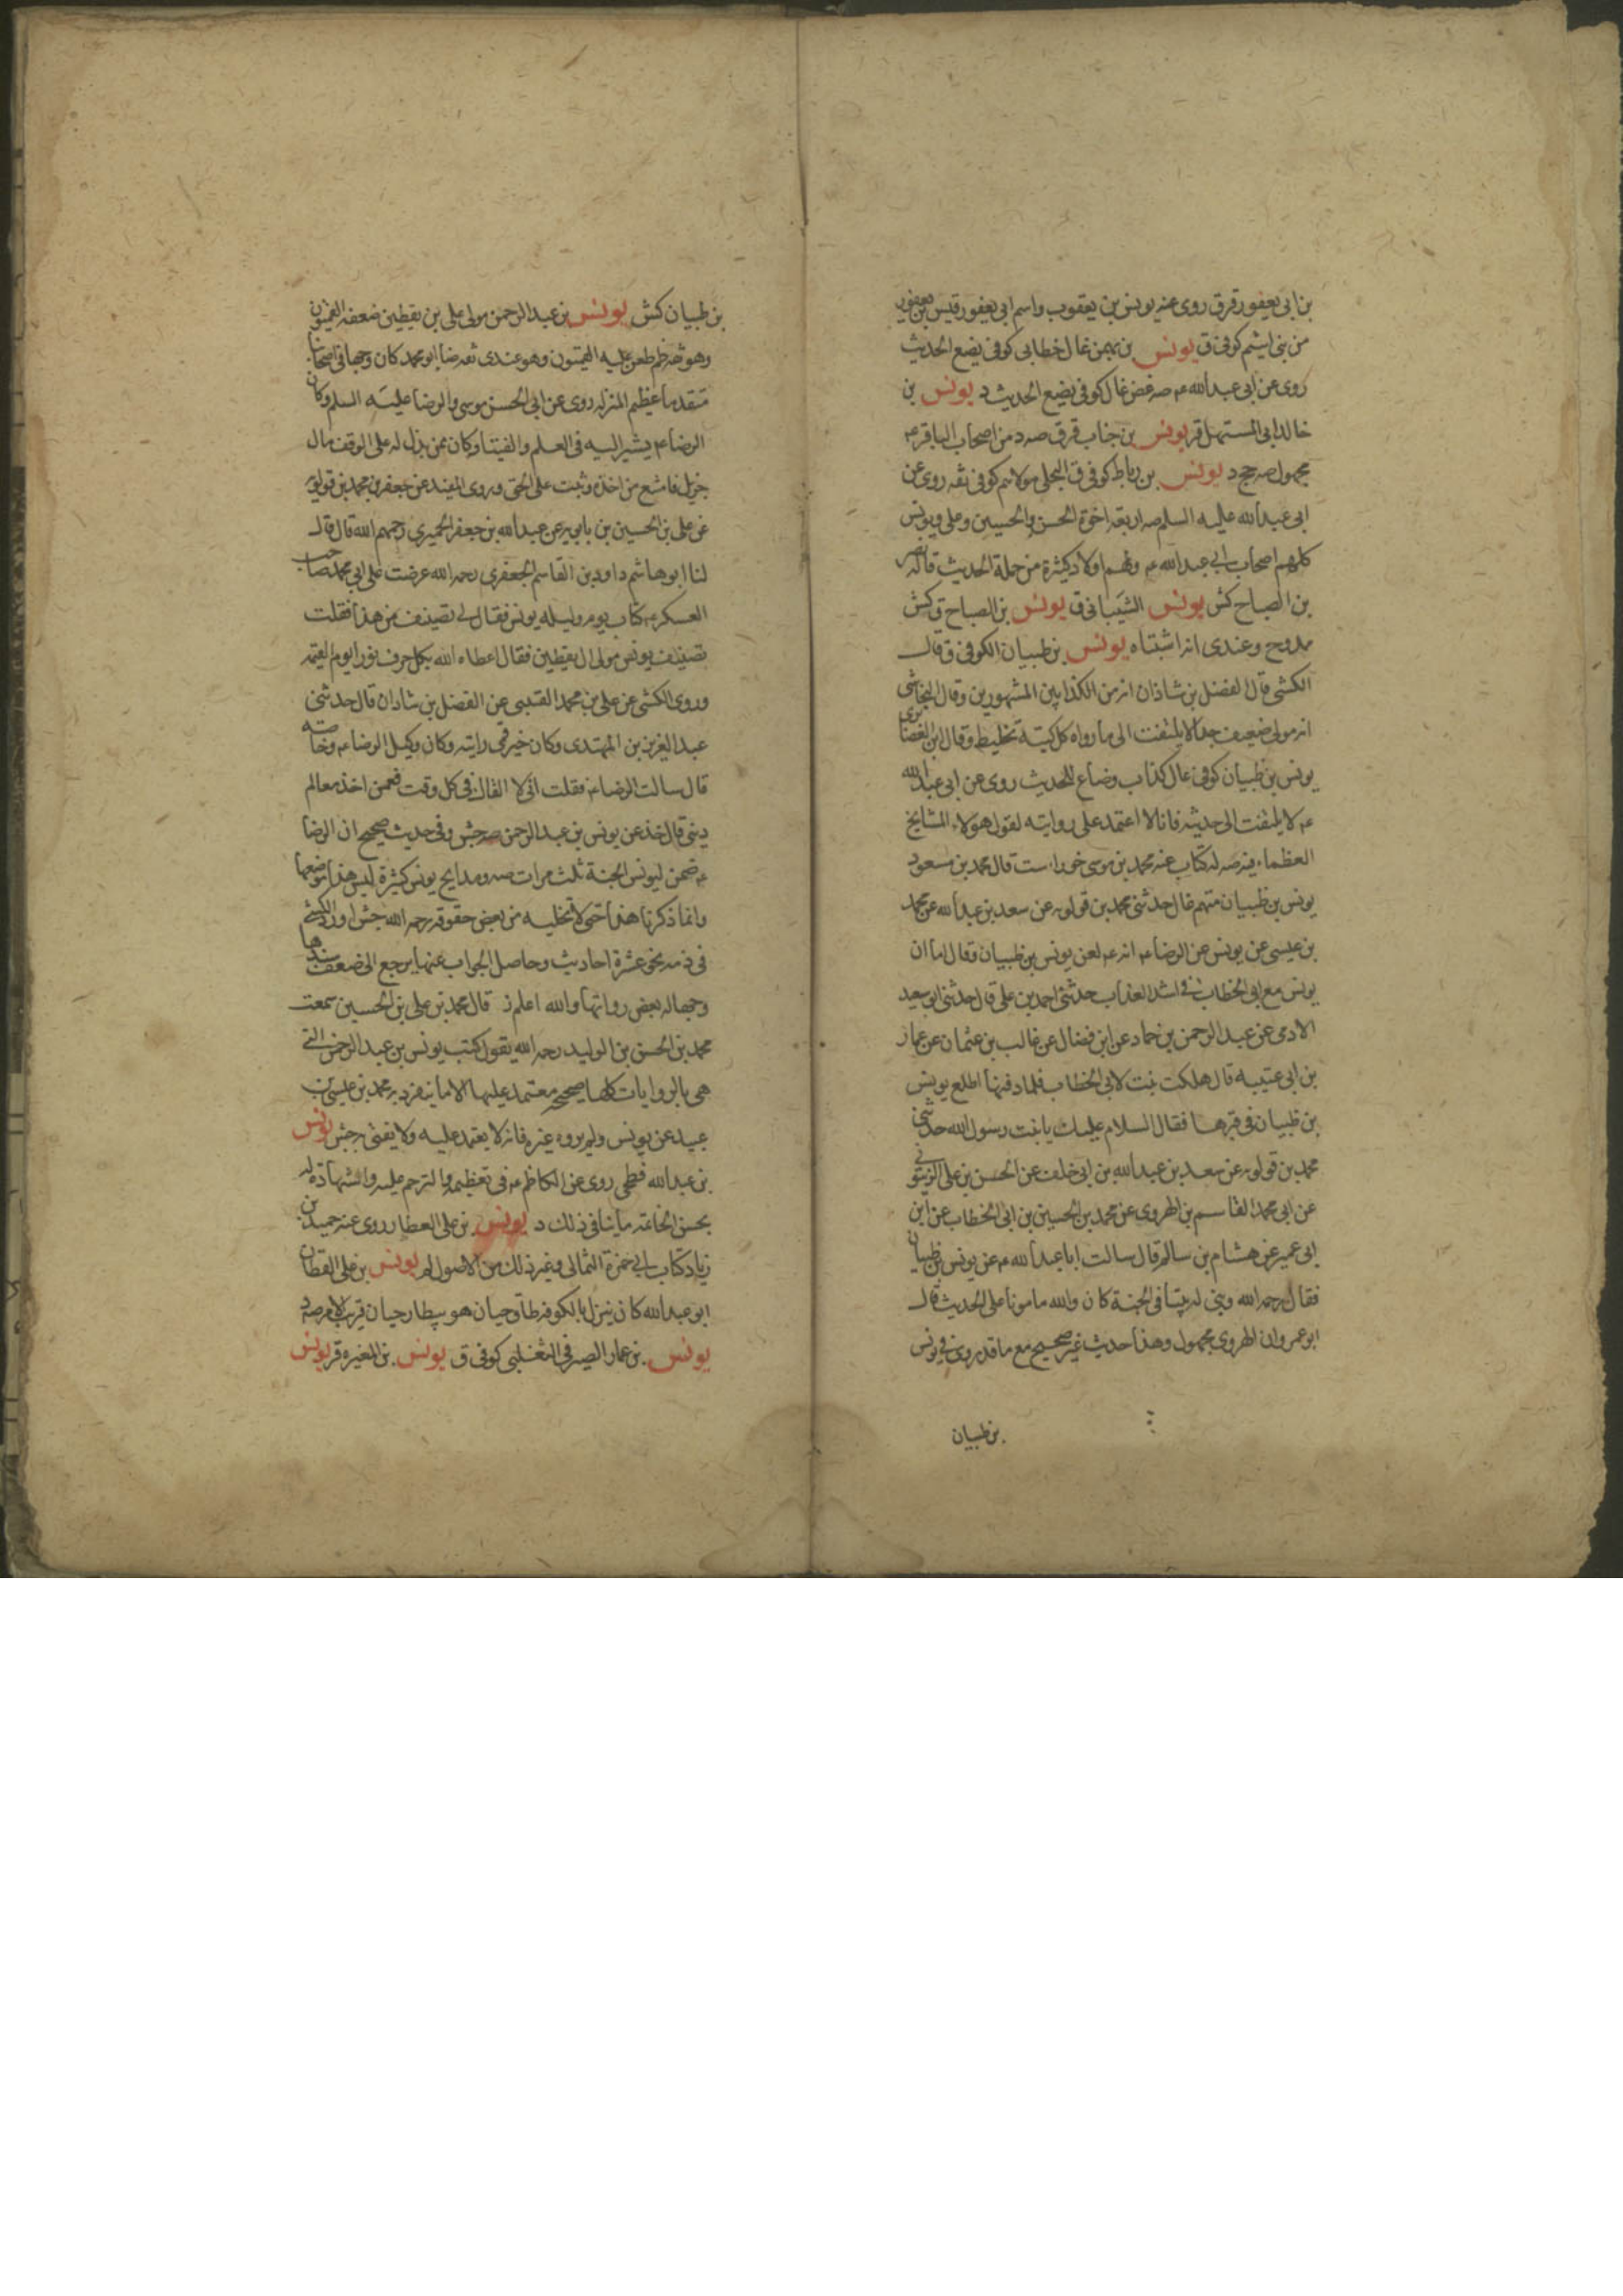 بن ابى يعفور قر ق روى عنه يونس بن يعقوب واسم ابى يعفور قيس بن يعفور
من بنى اشيم كوفى ق يونس بن بهمن غال خطابى كوفى يضع الحديث
روى عن ابى عبدالله عم صه غض غال كوفى يضع الحديث د يونس بن
خالد ابى المستهل قر يونس بن جناب قر ق صه د من اصحاب الباقر عم
مجهول صه جخ د يونس بن رباط كوفى ق البجلى مولاهم كوفى ثقه روى عن
ابى عبدالله عليه السلم صه اربعة اخوة الحسن والحسين وعلى ويونس
كلهم اصحاب ابى عبدالله عم ولهم اولاد كثيرة من حملة الحديث قاله نصر
بن الصباح كش يونس الشيبانى ق يونس بن الصباح ق كش
ممدوح وعندى انه اشتباه يونس بن ظبيان الكوفى ق قال
الكشى قال الفضل بن شاذان انه من الكذابين المشهورين وقال النجاشى
انه مولى ضعيف جدا لا يلتفت الى ما رواه كل كتبه تخليط وقال ابن الغضائرى
يونس بن ظبيان كوفى غال كذاب وضاع للحديث روى عن ابى عبدالله
عم لا يلتفت الى حديثه فانا لا اعتمد على روايته لقول هولاء المشايخ
العظماء فيه صه له كتاب عنه محمد بن موسى خوراء ست قال محمد بن مسعود
يونس بن ظبيان متهم غال حدثنى محمد بن قولويه عن سعد بن عبدالله عن محمد
بن عيسى عن يونس عن الرضا عم انه عم لعن يونس بن ظبيان وقال اما ان
يونس مع ابى الخطاب فى اشد العذاب حدثنى احمد بن على قال حدثنى ابو سعيد
الادمى عن عبد الرحمن بن حماد عن ابن فضال عن غالب بن عثمان عن عمار
بن ابى عتيبه قال هلكت بنت لابى الخطاب فلما دفنها اطلع يونس
بن ظبيان فى قبرها فقال السلام عليك يا بنت رسول الله حدثنى
محمد بن قولويه عن سعد بن عبدالله بن ابى خلف عن الحسن بن على الزيتونى
عن ابى محمد القاسم بن الهروى عن محمد بن الحسين بن ابى الخطاب عن ابن
ابى عمير عن هشام بن سالم قال سالت ابا عبدالله عم عن يونس بن ظبيان
فقال رحمه الله وبنى له بيتا فى الجنة كان والله مامونا على الحديث قال
ابو عمرو ابن الهروى مجهول وهذا حديث غير صحيح مع ما قد روى فى يونس
بن ظبيان
بن ظبيان كش يونس بن عبدالرحمن مولى على بن يقطين ضعفه القميون
وهو ثقه ظم طعن عليه القميون وهو عندى ثقه ضا ابو محمد كان وجها فى اصحابنا
متقدما عظيم المنزله روى عن ابى الحسن موسى والرضا عليه السلم وكان
الرضا عم يشير اليه فى العلم والفتيا وكان ممن بذل له على الوقف مال
جزيل فامتنع من اخذه وثبت على الحق وروى المفيد عن جعفر بن محمد بن قولويه
عن على بن الحسين بن بابويه عن عبدالله بن جعفر الحميرى رحمهم الله قال قال
لنا ابو هاشم داود بن القاسم الجعفرى رحمه الله عرضت على ابى محمد صاحب
العسكر عم كتاب يوم وليله يونس فقال لى تصنيف من هذا فقلت
تصنيف يونس مولى ال يقطين فقال اعطاه الله بكل حرف نورا يوم القيمه
وروى الكشى عن على بن محمد القتيبى عن الفضل بن شاذان قال حدثنى
عبد العزيز بن المهتدى وكان خير قمى رايته وكان وكيل الرضا عم وخاصته
قال سالت الرضا عم فقلت انى لا القاك فى كل وقت فعمن اخذ معالم
دينى قال خذ عن يونس بن عبد الرحمن صه جش وفى حديث صحيح ان الرضا
عم ضمن ليونس الجنة ثلث مرات صه ومدايح يونس كثيرة ليس هذا موضعها
وانما ذكرنا هذا حتى لا تخليه من بعض حقوقه رحمه الله جش اورد الكشى
فى ذمه نحو عشرة احاديث وحاصل الجواب عنها يرجع الى ضعف سندها
وجهاله بعض رواتها والله اعلم ز قال محمد بن على بن الحسين سمعت
محمد بن الحسن بن الوليد رحمه الله يقول كتب يونس بن عبد الرحمن التى
هى بالروايات كلها صحيحه معتمد عليها الا ما ينفرد به محمد بن عيسى بن
عبيد عن يونس ولم يروه غيره فانه لا يعتمد عليه ولا يفتى به جش يونس
بن عبدالله فطحى روى عن الكاظم عم فى تعظيمه والترحم عليه والشهادة له
بحسن الخاتمه ما ينافى ذلك د يونس بن على العطار روى عنه حميد بن
زياد كتاب ابى حمزة الثمالى وغير ذلك من الاصول لم يونس بن على القطان
ابو عبدالله كان ينزل بالكوفه طاق حيان هو بيطار حيان قريب الامر صه د
يونس بن عمار الصيرفى التغلبى كوفى ق يونس بن المغيره قر يونس